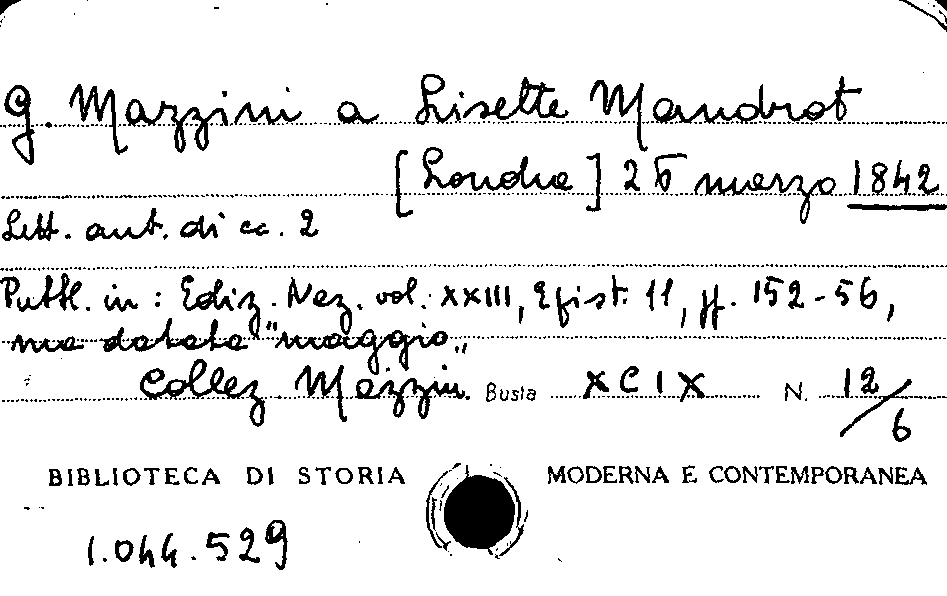 G. Mazzini a Lisette Mandrot
[Londra] 26 marzo 1842
Lett. aut. di cc. 2
Pubbl. in: Ediz. Naz. vol. XXIII, Epist. 11, pp. 152-56,
ma datata "maggio„
Collez. Mazzin. Busta XCIX N. 12/6
BIBLIOTECA DI STORIA MODERNA E CONTEMPORANEA
1.044.529